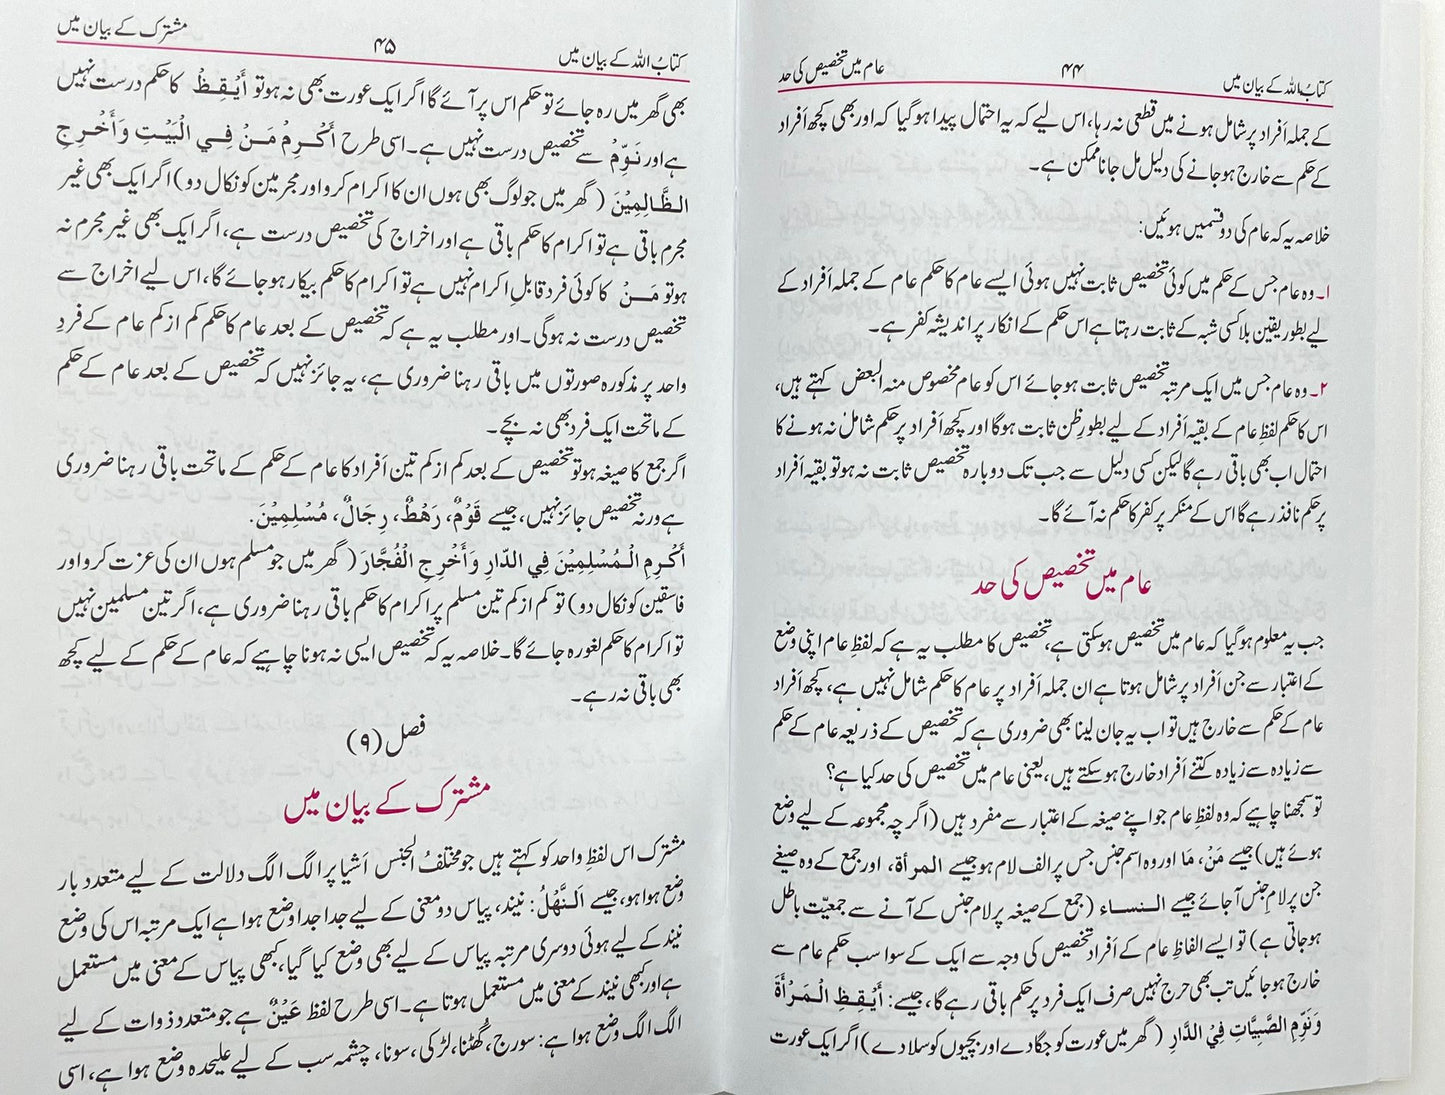 کتابُ اللہ کے بیان میں ۴۴ عام میں تخصیص کی حد
کے جملہ اَفراد پر شامل ہونے میں قطعی نہ رہا، اس لیے کہ یہ احتمال پیدا ہوگیا کہ اور بھی کچھ اَفراد
کے حکم سے خارج ہوجانے کی دلیل مل جانا ممکن ہے۔
خلاصہ یہ کہ عام کی دو قسمیں ہوئیں:
۱۔ وہ عام جس کے حکم میں کوئی تخصیص ثابت نہیں ہوئی ایسے عام کا حکم عام کے جملہ اَفراد کے
لیے بطورِ یقین بلا کسی شبہ کے ثابت رہتا ہے اس حکم کے انکار پر اندیشہ کفر ہے۔
۲۔ وہ عام جس میں ایک مرتبہ تخصیص ثابت ہوجائے اس کو عام مخصوص منہ البعض کہتے ہیں،
اس کا حکم لفظِ عام کے بقیہ اَفراد کے لیے بطورِ ظن ثابت ہوگا اور کچھ اَفراد پر حکم شامل نہ ہونے کا
احتمال اب بھی باقی رہے گا لیکن کسی دلیل سے جب تک دوبارہ تخصیص ثابت نہ ہو تو بقیہ اَفراد
پر حکم نافذ رہے گا اس کے منکر پر کفر کا حکم نہ آئے گا۔
عام میں تخصیص کی حد
جب یہ معلوم ہوگیا کہ عام میں تخصیص ہوسکتی ہے، تخصیص کا مطلب یہ ہے کہ لفظِ عام اپنی وضع
کے اعتبار سے جن اَفراد پر شامل ہوتا ہے ان جملہ اَفراد پر عام کا حکم شامل نہیں ہے، کچھ اَفراد
عام کے حکم سے خارج ہیں تو اب یہ جان لینا بھی ضروری ہے کہ تخصیص کے ذریعہ عام کے حکم
سے زیادہ سے زیادہ کتنے اَفراد خارج ہوسکتے ہیں، یعنی عام میں تخصیص کی حد کیا ہے؟
تو سمجھنا چاہیے کہ وہ لفظِ عام جو اپنے صیغہ کے اعتبار سے مفرد ہیں (اگرچہ مجموعہ کے لیے وضع
ہوئے ہیں) جیسے مَنْ، مَا اور وہ اسم جنس جس پر الف لام ہو جیسے المرأة، اور جمع کے وہ صیغے
جن پر لامِ جنس آجائے جیسے النساء (جمع کے صیغہ پر لام جنس کے آنے سے جمعیّت باطل
ہوجاتی ہے) تو ایسے الفاظِ عام کے اَفراد تخصیص کی وجہ سے ایک کے سوا سب حکم عام سے
خارج ہوجائیں تب بھی حرج نہیں صرف ایک فرد پر حکم باقی رہے گا، جیسے: أَيْقِظِ الْمَرْأَةَ
وَنَوِّمِ الصَّبِيَّاتِ فِيْ الدَّارِ (گھر میں عورت کو جگادے اور بچیوں کو سلادے) اگر ایک عورت
کتابُ اللہ کے بیان میں ۴۵ مشترک کے بیان میں
بھی گھر میں رہ جائے تو حکم اس پر آئے گا اگر ایک عورت بھی نہ ہو تو أَيْقِظْ کا حکم درست نہیں
ہے اور نَوِّمْ سے تخصیص درست نہیں ہے۔ اسی طرح أَكْرِمْ مَنْ فِي الْبَيْتِ وَأَخْرِجِ
الظَّالِمِيْنَ (گھر میں جو لوگ بھی ہوں ان کا اکرام کرو اور مجرمین کو نکال دو) اگر ایک بھی غیر
مجرم باقی ہے تو اکرام کا حکم باقی ہے اور اخراج کی تخصیص درست ہے، اگر ایک بھی غیر مجرم نہ
ہو تو مَنْ کا کوئی فرد قابلِ اکرام نہیں ہے تو اکرام کا حکم بیکار ہوجائے گا، اس لیے اخراج سے
تخصیص درست نہ ہوگی۔ اور مطلب یہ ہے کہ تخصیص کے بعد عام کا حکم کم از کم عام کے فردِ
واحد پر مذکورہ صورتوں میں باقی رہنا ضروری ہے، یہ جائز نہیں کہ تخصیص کے بعد عام کے حکم
کے ماتحت ایک فرد بھی نہ بچے۔
اگر جمع کا صیغہ ہو تو تخصیص کے بعد کم از کم تین اَفراد کا عام کے حکم کے ماتحت باقی رہنا ضروری
ہے ورنہ تخصیص جائز نہیں، جیسے قَوْمٌ، رَهْطٌ، رِجَالٌ، مُسْلِمِيْنَ.
أَكْرِمِ الْمُسْلِمِيْنَ فِي الدَّارِ وَأَخْرِجِ الْفُجَّارَ (گھر میں جو مسلم ہوں ان کی عزت کرو اور
فاسقین کو نکال دو) تو کم از کم تین مسلم پر اکرام کا حکم باقی رہنا ضروری ہے، اگر تین مسلمین نہیں
تو اکرام کا حکم لغو رہ جائے گا۔ خلاصہ یہ کہ تخصیص ایسی نہ ہونا چاہیے کہ عام کے حکم کے لیے کچھ
بھی باقی نہ رہے۔
فصل (۹)
مشترک کے بیان میں
مشترک اس لفظِ واحد کو کہتے ہیں جو مختلفُ الجنس اَشیا پر الگ الگ دلالت کے لیے متعدد بار
وضع ہوا ہو، جیسے اَلنَّهْلُ: نیند، پیاس دو معنی کے لیے جدا جدا وضع ہوا ہے ایک مرتبہ اس کی وضع
نیند کے لیے ہوئی دوسری مرتبہ پیاس کے لیے بھی وضع کیا گیا، کبھی پیاس کے معنی میں مستعمل
ہے اور کبھی نیند کے معنی میں مستعمل ہوتا ہے۔ اسی طرح لفظ عَيْنٌ ہے جو متعدد ذوات کے لیے
الگ الگ وضع ہوا ہے: سورج، گھٹنا، لڑکی، سونا، چشمہ سب کے لیے علیحدہ وضع ہوا ہے، اسی